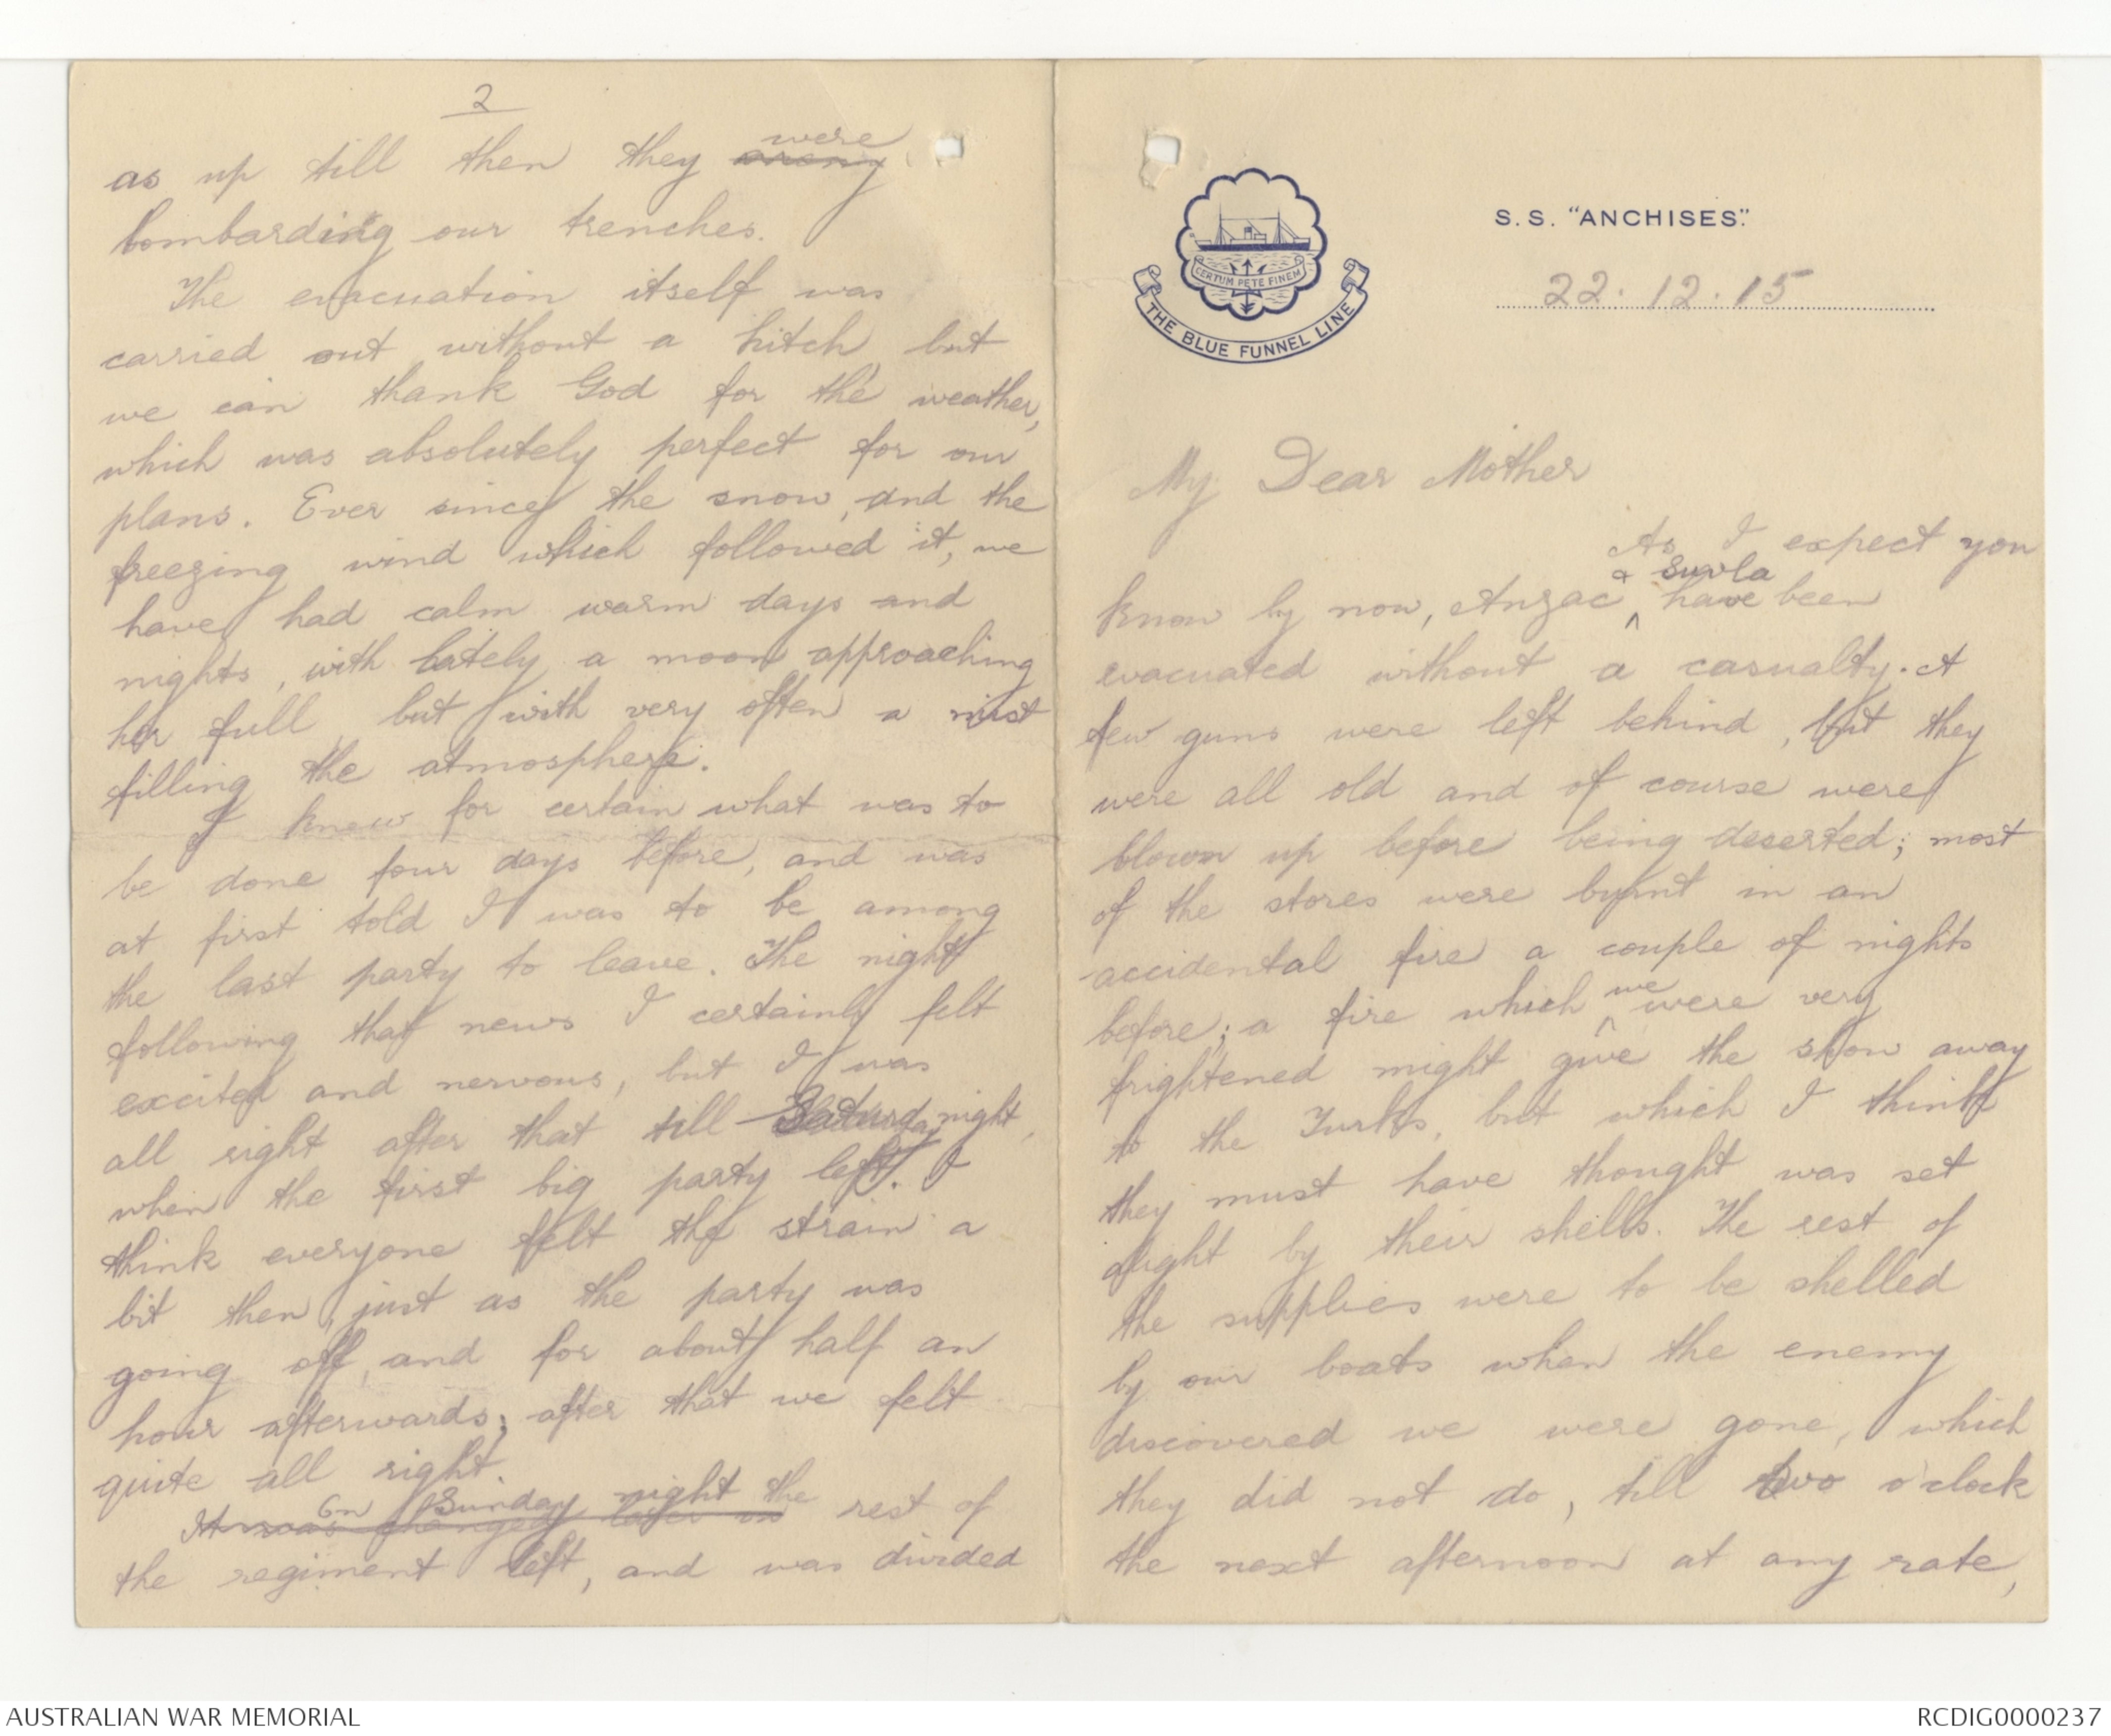 S.S. "ANCHISES".
CERTUM PETE FINEM
THE BLUE FUNNEL LINE
22.12.15
My Dear Mother
As I expect you
know by now, Anzac & Suvla have been
evacuated without a casualty. A
few guns were left behind, but they
were all old and of course were
blown up before being deserted; most
of the stores were burnt in an
accidental fire a couple of nights
before; a fire which we were very
frightened might give the show away
to the Turks, but which I think
they must have thought was set
alight by their shells. The rest of
the supplies were to be shelled
by our boats when the enemy
discovered we were gone, which
they did not do, till two o'clock
the next afternoon at any rate,
2
as up till then they were
bombarding our trenches.
The evacuation itself was
carried out without a hitch but
we can thank God for the weather,
which was absolutely perfect for our
plans. Ever since the snow, and the
freezing wind which followed it, we
have had calm warm days and
nights, with lately a moon approaching
her full, but with very often a mist
filling the atmosphere.
I knew for certain what was to
be done four days before, and was
at first told I was to be among
the last party to leave. The night
following that news I certainly felt
excited and nervous, but I was
all right after that till Saturday night,
when the first big party left. I
think everyone felt the strain a
bit then, just as the party was
going off, and for about half an
hour afterwards; after that we felt
quite all right.
It was changed later on On Sunday night the rest of
the regiment left, and was divided
AUSTRALIAN WAR MEMORIAL
RCDIG0000237